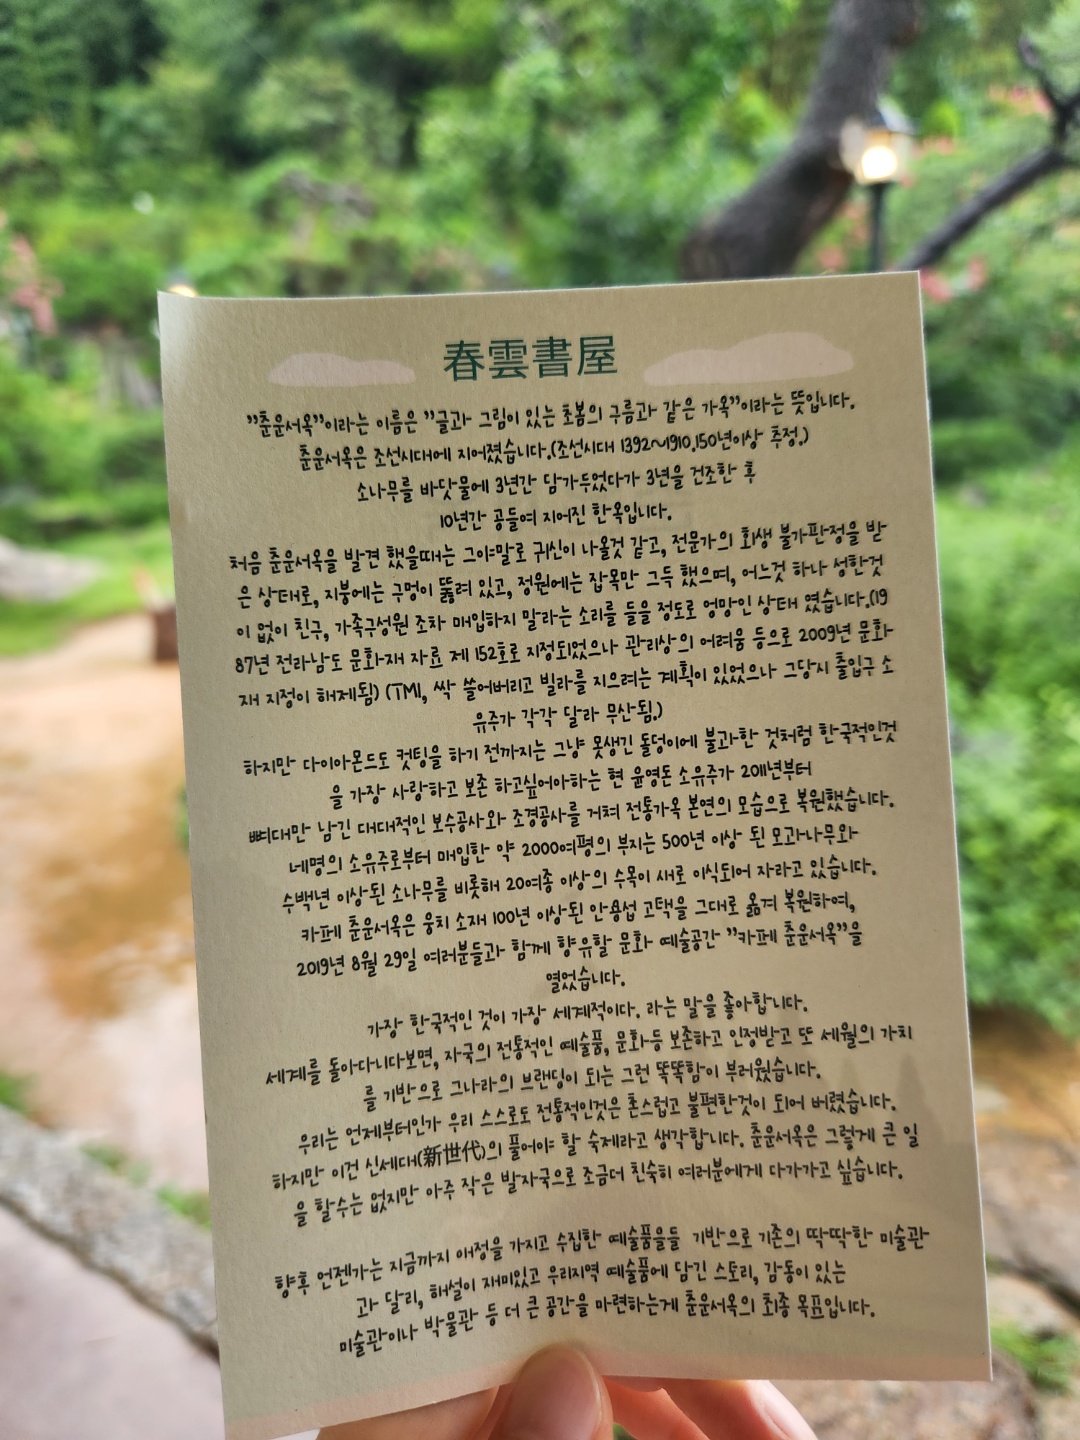 春雲書屋
"춘운서옥"이라는 이름은 "글과 그림이 있는 초봄의 구름과 같은 가옥"이라는 뜻입니다.
춘운서옥은 조선시대에 지어졌습니다.(조선시대 1392~1910.150년이상 추정.)
소나무를 바닷물에 3년간 담가두었다가 3년을 건조한 후
10년간 공들여 지어진 한옥입니다.
처음 춘운서옥을 발견 했을때는 그야말로 귀신이 나올것 같고, 전문가의 회생 불가판정을 받
은 상태로, 지붕에는 구멍이 뚫려 있고, 정원에는 잡목만 그득 했으며, 어느것 하나 성한것
이 없이 친구, 가족구성원 조차 매입하지 말라는 소리를 들을 정도로 엉망인 상태 였습니다.(19
87년 전라남도 문화재 자료 제 152호로 지정되었으나 관리상의 어려움 등으로 2009년 문화
재 지정이 해제됨) (TMI, 싹 쓸어버리고 빌라를 지으려는 계획이 있었으나 그당시 출입구 소
유주가 각각 달라 무산됨.)
하지만 다이아몬드도 컷팅을 하기 전까지는 그냥 못생긴 돌덩이에 불과한 것처럼 한국적인것
을 가장 사랑하고 보존 하고싶어하는 현 윤영돈 소유주가 2011년부터
뼈대만 남긴 대대적인 보수공사와 조경공사를 거쳐 전통가옥 본연의 모습으로 복원했습니다.
네명의 소유주로부터 매입한 약 2000여평의 부지는 500년 이상 된 모과나무와
수백년 이상된 소나무를 비롯해 20여종 이상의 수목이 새로 이식되어 자라고 있습니다.
카페 춘운서옥은 웅치 소재 100년 이상된 안용섭 고택을 그대로 옮겨 복원하여,
2019년 8월 29일 여러분들과 함께 향유할 문화 예술공간 "카페 춘운서옥"을
열었습니다.
가장 한국적인 것이 가장 세계적이다. 라는 말을 좋아합니다.
세계를 돌아다니다보면, 자국의 전통적인 예술품, 문화등 보존하고 인정받고 또 세월의 가치
를 기반으로 그나라의 브랜딩이 되는 그런 똑똑함이 부러웠습니다.
우리는 언제부터인가 우리 스스로도 전통적인것은 촌스럽고 불편한것이 되어 버렸습니다.
하지만 이건 신세대(新世代)의 풀어야 할 숙제라고 생각합니다. 춘운서옥은 그렇게 큰 일
을 할수는 없지만 아주 작은 발자국으로 조금더 친숙히 여러분에게 다가가고 싶습니다.
향후 언젠가는 지금까지 애정을 가지고 수집한 예술품을들 기반으로 기존의 딱딱한 미술관
과 달리, 해설이 재미있고 우리지역 예술품에 담긴 스토리, 감동이 있는
미술관이나 박물관 등 더 큰 공간을 마련하는게 춘운서옥의 최종 목표입니다.